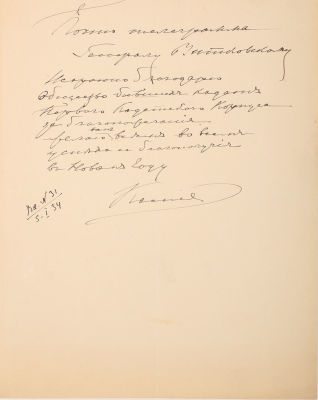 Копия телеграммы
Генералу Витковскому
Искренно благодарю
Общество бывших кадет
Первого Кадетского Корпуса
за
желаю вам во всем
успеха и благополучия
в Новом Году
На № 31
5-I 34